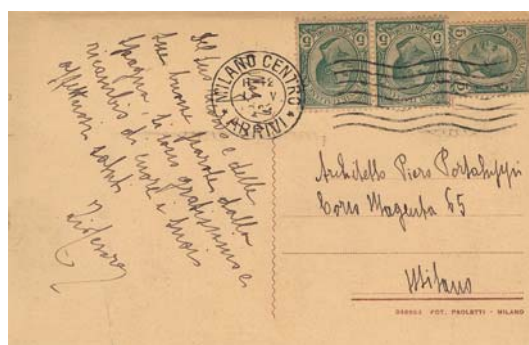 Del tuo e delle
tue buone parole dalla
Spagna, ti sono gratissimo e
ricambio di cuore i miei
affettuosi saluti.
MILANO CENTRO
ARRIVI
5
5
5
Architetto Piero Portaluppi
Corso Magenta 65
Milano
FOT. PAOLETTI - MILANO